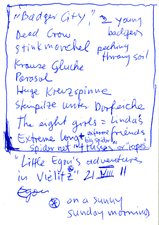 "Badger City", 2 young
badgers
Dead Crow
Stinkmorchel peching
throug soil
Krause Glucke
Parasol
Huge Kreuzspinne
Steinpilze unter Dorfeiche
The eight girls = Linda's
Extremely long + athome friends
spider net
"Little Egon's adventure
in Vielitz" 21. VIII 11
Egon
on a sunny
sunday morning